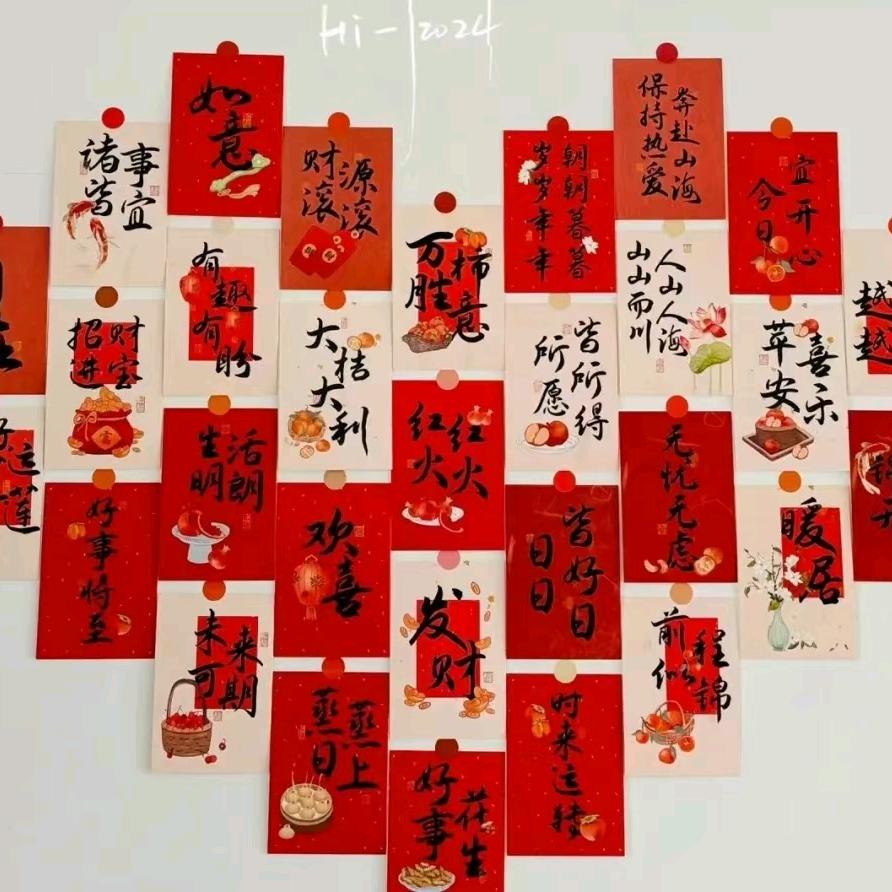 Hi-2024
如意
保持热爱
奔赴山海
诸事
皆宜
财源
滚滚
朝朝暮暮
岁岁年年
今日
宜开心
万柿
胜意
有趣有盼
人山人海
山山而川
越
越
招财
进宝
大桔
大利
所愿
皆所得
苹安
喜乐
生活
明朗
红红
火火
无忧无虑
运
莲
好事将至
欢喜
日日
皆好日
暖居
未来
可期
发财
前程
似锦
蒸蒸
日上
时来运转
好事
花生